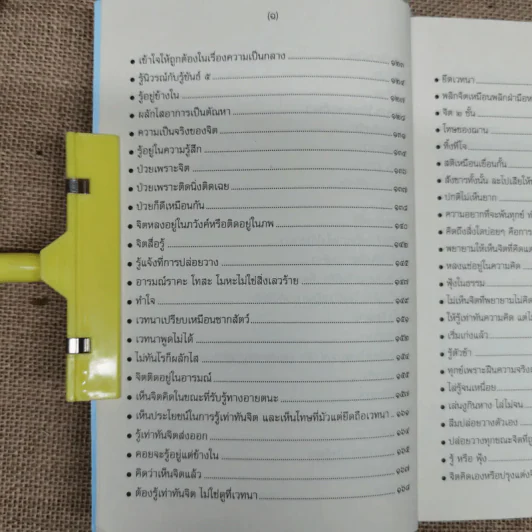 (ฉ)
เข้าใจให้ถูกต้องในเรื่องความเป็นกลาง
รู้นิวรณ์กับรู้ขันธ์ ๕
รู้อยู่ข้างใน
ผลักไสอาการเป็นตัณหา
ความเป็นจริงของจิต
รู้อยู่ในความรู้สึก
ป่วยเพราะจิต
ป่วยเพราะติดนิ่งติดเฉย
ป่วยก็ดีเหมือนกัน
จิตหลงอยู่ในภวังค์หรือติดอยู่ในภพ
จิตสื่อรู้ ๑๔๒
รู้แจ้งที่การปล่อยวาง ๑๔๕
อารมณ์ราคะ โทสะ โมหะไม่ใช่สิ่งเลวร้าย ๑๔๗
ทำใจ ๑๔๙
เวทนาเปรียบเหมือนซากสัตว์ ๑๕๑
เวทนาพูดไม่ได้ ๑๕๒
ไม่ทันโรก็ผลักไส ๑๕๔
จิตติดอยู่ในอารมณ์ ๑๕๕
เห็นจิตคิดในขณะที่รับรู้ทางอายตนะ ๑๕๘
เห็นประโยชน์ในการรู้เท่าทันจิต และเห็นโทษที่มัวแต่ยึดถือเวทนา ๑๖๑
รู้เท่าทันจิตส่งออก ๑๖๔
คอยจะรู้อยู่แต่ข้างใน ๑๖๕
คิดว่าเห็นจิตแล้ว ๑๖๗
ต้องรู้เท่าทันจิต ไม่ใช่ดูที่เวทนา ๑๖๘
ยึดเวทนา
พลิกจิตเหมือนพลิกฝ่ามือ
จิต ๒ ชั้น
โทษของฌาน
ทิ้งที่ใจ
สติเหมือนเขื่อนกั้น
ปกติไม่เห็นยาก
ความอยากที่จะพ้นทุกข์
คิดถึงสิ่งใดบ่อยๆ คือการ
พยายามให้เห็นจิตที่คิด
หลงแช่อยู่ในความคิด
ฟุ้งในธรรม
ไม่เห็นจิตที่พยายามไม่คิด
ให้รู้เท่าทันความคิด แต่
เริ่มเก่งแล้ว
รู้ตัวช้า
ทุกข์เพราะฝืนความจริง
ไล่รู้จนเหนื่อย
เล่นงูกินหาง ไล่ไม่จน
ลืมปล่อยวางตัวเอง
ปล่อยวางทุกขณะจิต
รู้ หรือ ฟุ้ง
จิตคิดเองหรือปรุงแต่ง